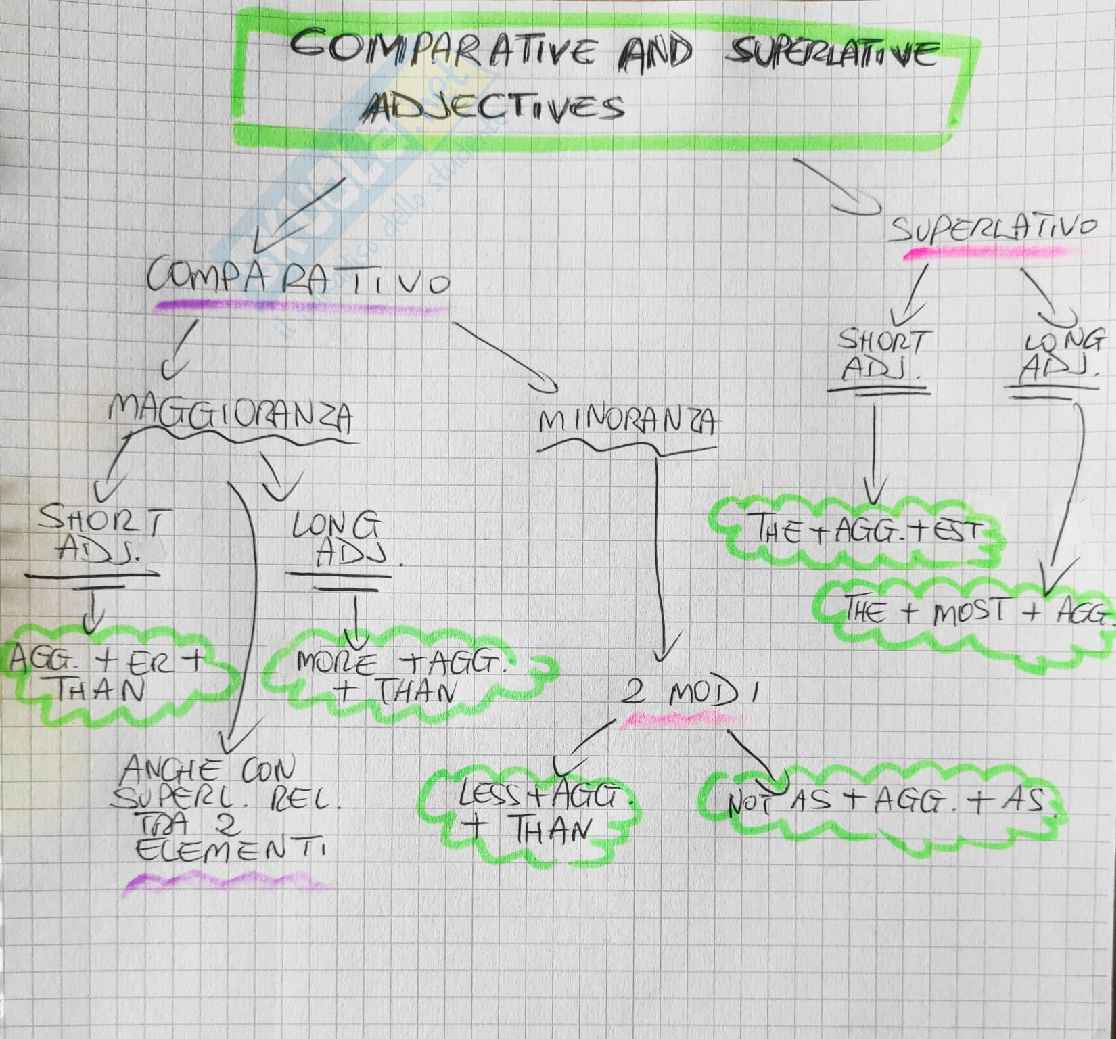 COMPARATIVE AND SUPERLATIVE
ADJECTIVES
SUPERLATIVO
COMPARATIVO
SHORT
ADJ.
LONG
ADJ.
MAGGIORANZA
MINORANZA
SHORT
ADJ.
LONG
ADJ.
THE + AGG. + EST
THE + MOST + AGG.
AGG. + ER +
THAN
MORE + AGG.
+ THAN
2 MODI
ANCHE CON
SUPERL. REL.
TRA 2
ELEMENTI
LESS + AGG.
+ THAN
NOT AS + AGG. + AS